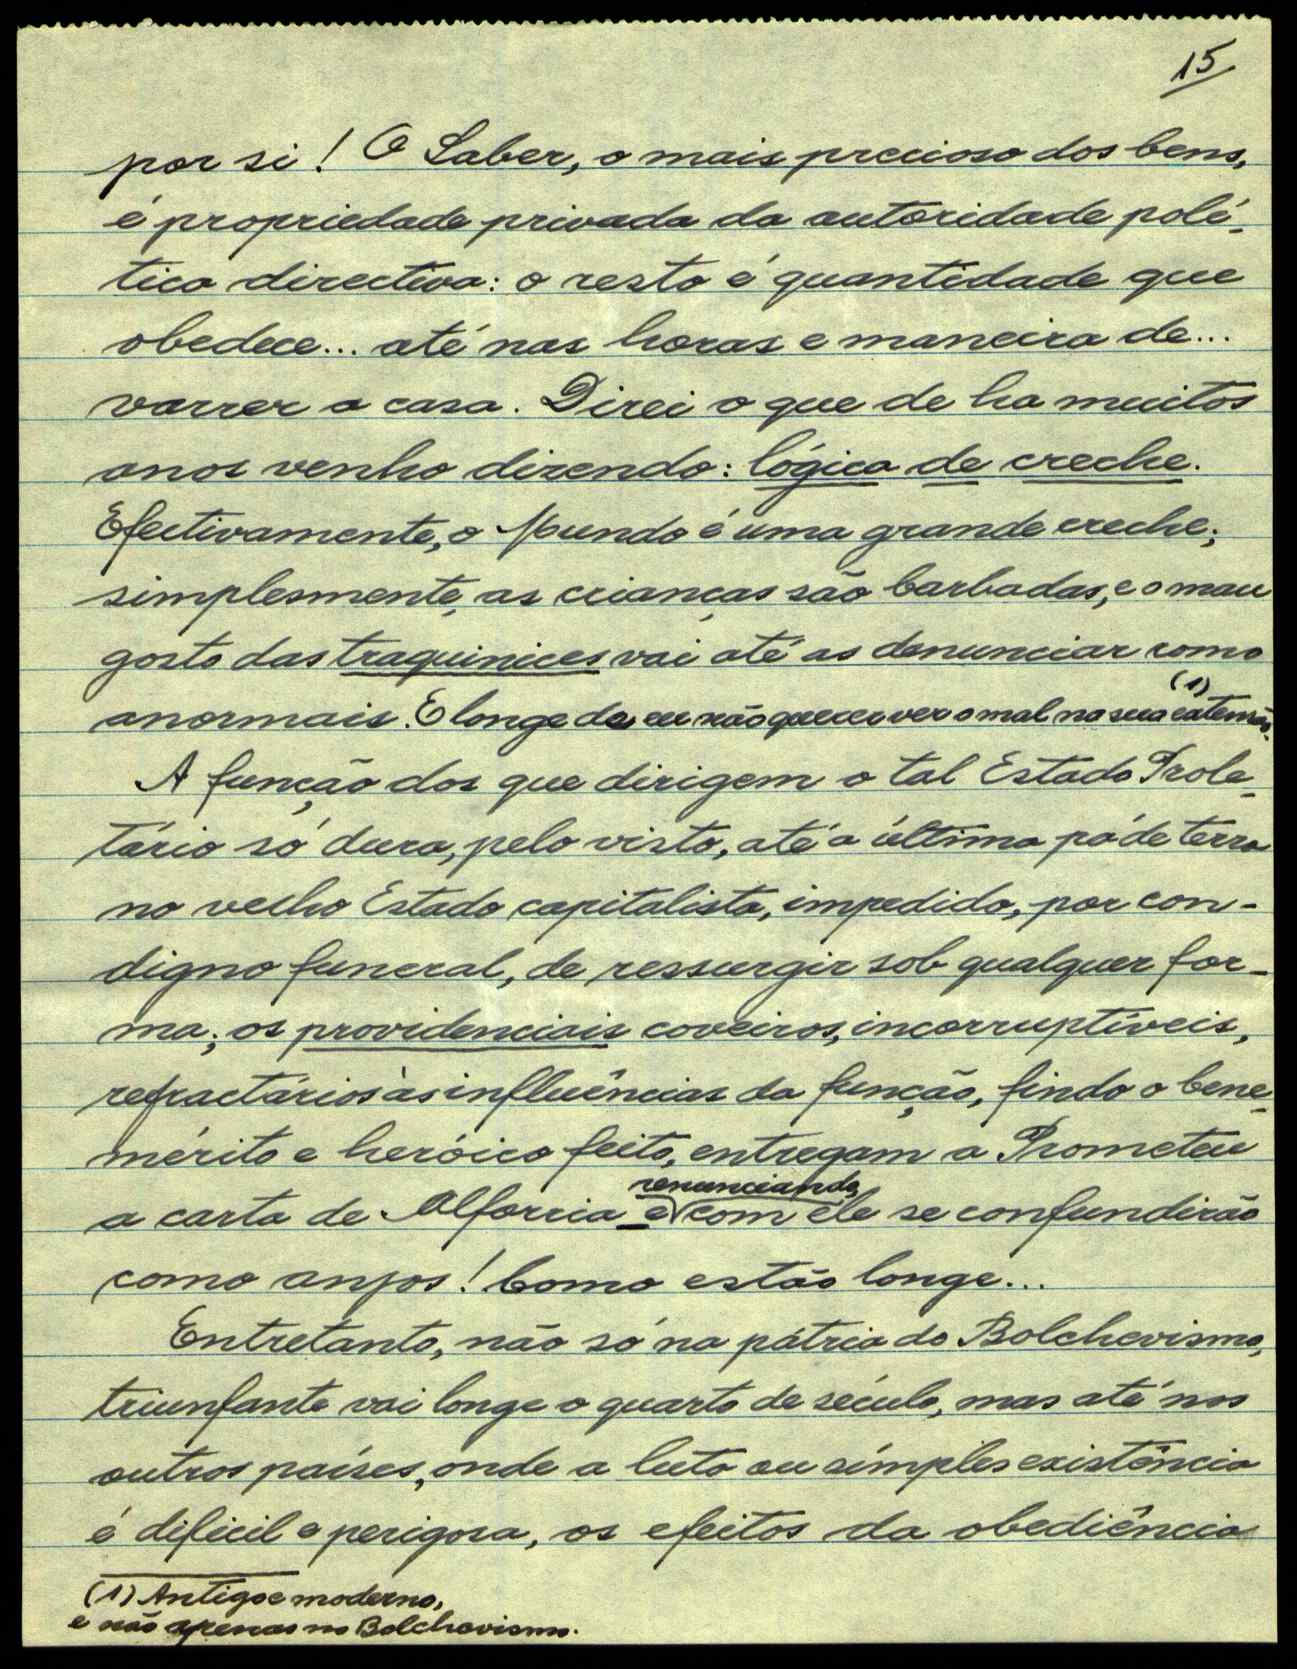 15
por si! O Saber, o mais precioso dos bens,
é propriedade privada da autoridade polí-
tica directiva: o resto é quantidade que
obedece... até nas horas e maneira de...
varrer a casa. Direi o que de ha muitos
anos venho dizendo: lógica de creche.
Efectivamente, o Mundo é uma grande creche;
simplesmente, as crianças são barbadas, e o mau
gosto das traquinices vai até as denunciar como
anormais. E longe de eu não querer ver o mal na sua extensão. (1)
A função dos que dirigem o tal Estado Prole-
tário só dura, pelo visto, até a última pá de terra
no velho Estado capitalista, impedido, por con-
digno funeral, de ressurgir sob qualquer for-
ma; os providenciais coveiros, incorruptíveis,
refractários às influências da função, findo o bene-
mérito e heróico feito, entregam a Prometeu
renunciando,
a carta de Alforria e com ele se confundirão
como anjos! Como estão longe...
Entretanto, não só na pátria do Bolchevismo,
triunfante vai longe o quarto de século, mas até nos
outros países, onde a luta ou símples existência
é difícil e perigosa, os efeitos da obediência
(1) Antigo e moderno,
e não apenas no Bolchevismo.